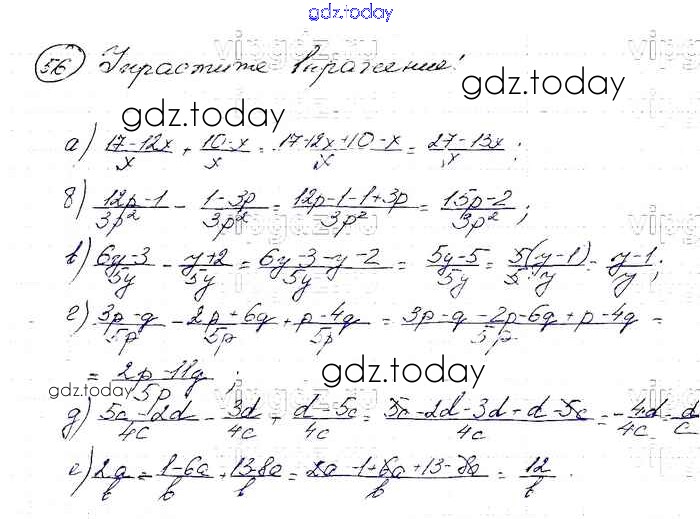 gdz.today
56 Упростите выражение:
gdz.today
а) (17-12x)/x + (10-x)/x = (17-12x+10-x)/x = (27-13x)/x ;
б) (12p-1)/(3p²) - (1-3p)/(3p²) = (12p-1-1+3p)/(3p²) = (15p-2)/(3p²) ;
в) (6y-3)/(5y) - (y+2)/(5y) = (6y-3-y-2)/(5y) = (5y-5)/(5y) = 5(y-1)/(5·y) = (y-1)/y ;
г) (3p-q)/(5p) - (2p+6q)/(5p) + (p-4q)/(5p) = (3p-q-2p-6q+p-4q)/(5p) =
= (2p-11q)/(5p) ;
gdz.today
gdz.today
д) (5c-2d)/(4c) - (3d)/(4c) + (d-5c)/(4c) = (5c-2d-3d+d-5c)/(4c) = -4d/(4c) = d/c
е) 2a/b = (1-6a)/b + (13-8a)/b = (2a-1+6a+13-8a)/b = 12/b .